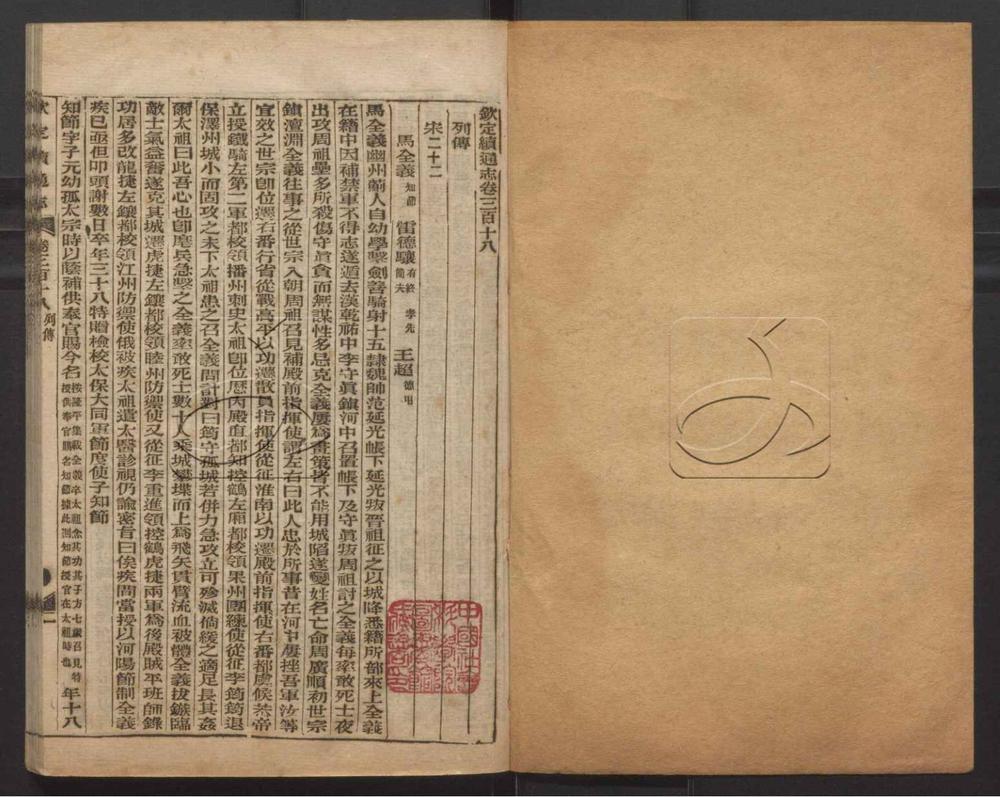 欽定續通志卷三百十八
列傳
宋二十二
馬全義知節 雷德驤有終 孝先 簡夫 王超德用
馬全義幽州薊人自幼學擊劍善騎射十五隸魏帥范延光帳下延光叛晉祖征之以城降悉籍所部來上全義
在籍中因補禁軍不得志遂遁去漢乾祐中李守眞鎮河中召置帳下及守眞叛周祖討之全義每率敢死士夜
出攻周祖壘多所殺傷守眞貪而無謀性多忌克全義屢爲畫策皆不能用城陷遂變姓名亡命周廣順初世宗
鎮澶淵全義往事之從世宗入朝周祖召見補殿前指揮使謂左右曰此人忠於所事昔在河中屢挫吾軍汝等
宜效之世宗卽位遷右番行省從戰高平以功遷散員指揮使從征淮南以功遷殿前指揮使右番都虞候恭帝
立授鐵騎左第二軍都校領播州刺史太祖卽位歷內殿直都知控鶴左廂都校領果州團練使從征李筠筠退
保澤州城小而固攻之未下太祖患之召全義問計對曰筠守孤城若併力急攻立可殄滅倘緩之適足長其姦
爾太祖曰此吾心也卽麾兵急擊之全義率敢死士數十人乘城攀堞而上爲飛矢貫臂流血被體全義拔鏃臨
敵士氣益奮遂克其城遷虎捷左鑲都校領睦州防禦使又從征李重進領控鶴虎捷兩軍爲後殿賊平班師錄
功居多改龍捷左鑲都校領江州防禦使俄被疾太祖遣太醫診視仍諭密旨曰俟疾間當授以河陽節制全義
疾已亟但叩頭謝數日卒年三十八特贈檢校太保大同軍節度使子知節
知節字子元幼孤太宗時以蔭補供奉官賜今名按隆平集載全義卒太祖念其功其子方七歲召見特授供奉官賜名知節據此則知節授官在太祖時也年十八
欽定續通志 卷三百十八 列傳 一